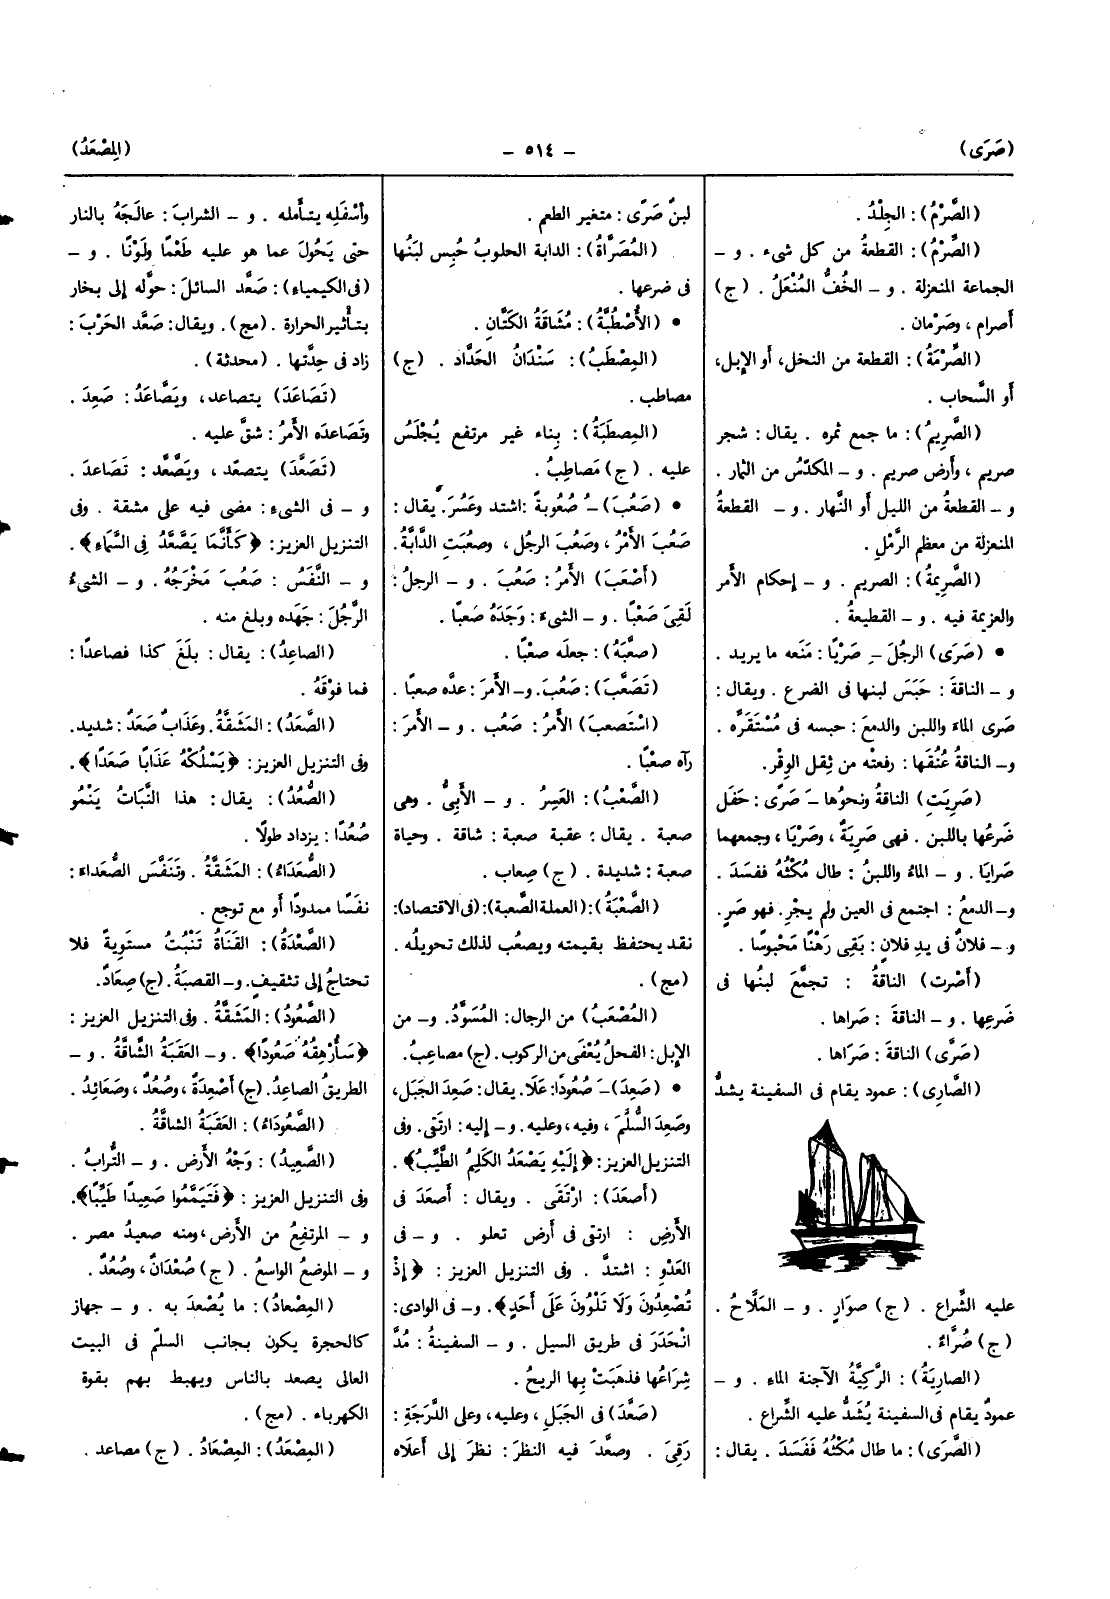 (صَرَى)
– ٥١٤ –
(المِصْعَدُ)
(الصَّرْمُ): الجِلْدُ .
(الصِّرْمُ): القطعةُ من كل شىء . و –
الجماعة المنعزلة . و – الخُفُّ المُنْعَلُ . (ج)
أصرام ، وصَرْمان .
(الصِّرْمَةُ): القطعة من النخل، أو الإبل،
أو السَّحاب .
(الصَّرِيمُ): ما جمع ثمره . يقال: شجر
صريم ، وأرض صريم . و – المكدّسُ من الثمار .
و – القطعةُ من الليل أو النَّهار . و – القطعةُ
المنعزلة من معظم الرَّمْلِ .
(الصَّرِيمةُ): الصريم . و – إحكام الأمر
والعزيمة فيه . و – القطيعةُ .
• (صَرَى) الرجُلَ –ِ صَرْيًا: مَنَعه ما يريد .
و – الناقةَ: حَبَسَ لبنها فى الضرع . ويقال:
صَرى الماءَ واللبن والدمعَ: حبسه فى مُسْتَقَرِّه .
و– الناقةُ عُنُقَها: رفعتْه من ثِقل الوِقْر.
(صَرِيَتِ) الناقةُ ونحوُها –َ صَرًى: حَفَل
ضَرعُها باللبن . فهى صَرِيَةٌ ، وصَرْيَا ، وجمعهما
صَرايَا . و – الماءُ واللبنُ : طال مُكْثُهُ ففسَدَ .
و– الدمعُ : اجتمع فى العين ولم يجْرِ. فهو صَرٍ.
و – فلانٌ فى يدِ فلانٍ: بَقِى رَهْنًا مَحْبوسًا .
(أصْرت) الناقةُ : تجمَّعَ لبنُها فى
ضَرعِها . و – الناقةَ : صَراها .
(صَرَّى) الناقةَ: صَرَاها .
(الصَّارِى): عمود يقام فى السفينة يشدُّ
عليه الشِّراع . (ج) صوَارٍ . و – المَلَّاحُ .
(ج) صُرَّاءٌ.
(الصارِيَةُ): الرَّكِيَّةُ الآجنة الماءِ . و –
عمودٌ يقام فى السفينة يُشَدُّ عليه الشِّراع .
(الصَّرَى): ما طال مُكْثُهُ فَفَسَدَ . يقال:
لبنٌ صَرًى: متغير الطعم .
(المُصَرَّاةُ): الدابة الحلوبُ حُبِس لبَنُها
فى ضرعها .
• (الأُصْطُبَّةُ): مُشَاقَةُ الكَتَّانِ .
(المِصْطَبُ): سَنْدَانُ الحَدَّاد . (ج)
مصاطب .
(المِصطَبَةُ): بِناء غير مرتفع يُجْلَسُ
عليه . (ج) مَصَاطِبُ.
• (صَعُبَ) –ُ صُعُوبةً :اشتد وعَسُرَ. يقال:
صَعُبَ الأمْرُ ، وصَعُبَ الرجُل ، وصعُبَتِ الدَّابَّةُ.
(أصْعَبَ) الأمرُ: صَعُبَ . و – الرجلُ:
لَقِىَ صَعْبًا . و – الشىءَ: وَجَدَهُ صَعبًا .
(صعَّبَهُ): جعله صعْبًا .
(تَصَعَّبَ): صَعُبَ. و– الأمرَ: عدَّه صعبًا .
(اسْتَصعبَ) الأمرُ: صَعُب . و – الأمرَ:
رآه صعْبًا .
(الصَّعْبُ): العَسِرُ . و – الأَبىُّ . وهى
صعبة . يقال: عقبة صعبة: شاقة . وحياة
صعبة: شديدة . (ج) صِعاب .
(الصَّعْبَةُ):(العملة الصَّعبة):(فى الاقتصاد):
نقد يحتفظ بقيمته ويصعُب لذلك تحويلُه .
(مج) .
(المُصْعَبُ) من الرجال: المُسَوَّدُ. و– من
الإبل: الفحلُ يُعْفَى من الركوب. (ج) مصاعِبُ.
• (صَعِدَ) –َ صُعُودًا: عَلَا. يقال: صَعِدَ الجَبَل،
وصَعِدَ السُّلَّمَ ، وفيه، وعليه. و – إليه: ارتَقى. وفى
التنزيل العزيز: ﴿إِلَيْهِ يَصْعَدُ الكَلِمُ الطَّيِّبُ﴾ .
(أصعَدَ): ارْتَقَى . ويقال: أصعَدَ فى
الأرْضِ : ارتقى فى أرض تعلو . و – فى
العَدْوِ : اشتدَّ . وفى التنزيل العزيز : ﴿إذْ
تُصْعِدُونَ وَلَا تَلْوُونَ عَلَى أحَدٍ﴾. و– فى الوادى:
انْحَدَرَ فى طريق السيل . و – السفينةُ: مُدَّ
شِرَاعُها فذهَبَتْ بِها الريحُ .
(صَعَّدَ) فى الجَبَلِ ، وعليه، وعلى الدَّرَجَةِ:
رَقِىَ . وصعَّدَ فيه النظرَ: نظرَ إلى أعلَاه
وأسْفَلِه يتأمله . و – الشرابَ: عالَجَهُ بالنار
حتى يَحُولَ عما هو عليه طَعْمًا ولَوْنًا . و –
(فى الكيمياء): صَعَّد السائلَ: حوَّله إلى بخار
بتأثير الحرارة . (مج). ويقال: صَعَّد الحَرْبَ:
زاد فى حِدَّتها . (محدثة) .
(تَصَاعَدَ) يتصاعد، ويَصَّاعَدُ: صَعِدَ .
وتَصَاعَده الأمرُ: شقَّ عليه .
(تَصَعَّدَ) يتصعّد ، ويَصَّعَّد : تَصَاعدَ .
و – فى الشىءِ: مضى فيه على مشقة . وفى
التنزيل العزيز: ﴿كَأَنَّمَا يَصَّعَّدُ فِى السَّمَاءِ﴾ .
و – النَّفَسُ : صَعُبَ مَخْرَجُهُ . و – الشىءُ
الرَّجُلَ: جَهَده وبلغ منه .
(الصاعِدُ): يقال: بلَغَ كذا فصاعدًا:
فما فوْقَهُ .
(الصَّعَدُ): المَشَقَّةُ. وعَذَابٌ صَعَدٌ: شديد.
وفى التنزيل العزيز: ﴿يَسْلُكْهُ عَذَابًا صَعَدًا﴾.
(الصُّعُدُ): يقال: هذا النَّبَاتُ يَنْمُو
صُعُدًا: يزداد طولًا .
(الصُّعَدَاءُ): المَشَقَّةُ . وتَنَفَّسَ الصُّعَداءَ:
نفَسًا ممدودًا أو مع توجع .
(الصَّعْدَةُ): القَنَاةُ تَنْبُتُ مستَوِيةً فلا
تحتاجُ إلى تثقيف. و– القصبَةُ. (ج) صِعَادٌ.
(الصَّعُودُ): المَشَقَّةُ . وفى التنزيل العزيز:
﴿سَأُرْهِقُهُ صَعُودًا﴾ . و– العَقَبَةُ الشَّاقَّةُ . و –
الطريقُ الصاعِدُ. (ج) أصْعِدَةٌ، وصُعُدٌ، وصَعَائِدُ .
(الصَّعُودَاءُ): العَقَبَةُ الشاقَّةُ .
(الصَّعِيدُ): وَجْهُ الأرض . و – التُّرابُ .
وفى التنزيل العزيز: ﴿فَتَيَمَّمُوا صَعِيدًا طَيِّبًا﴾.
و – المرتفِعُ من الأرض، ومنه صعيدُ مصر .
و – الموضعُ الواسعُ . (ج) صُعْدَانٌ، وصُعُدٌ.
(المِصْعادُ): ما يُصْعدَ به . و – جهاز
كالحجرة يكون بجانب السلّم فى البيت
العالى يصعد بالناس ويهبط بهم بقوة
الكهرباء . (مج).
(المِصْعَدُ): المِصْعَادُ . (ج) مصاعد .